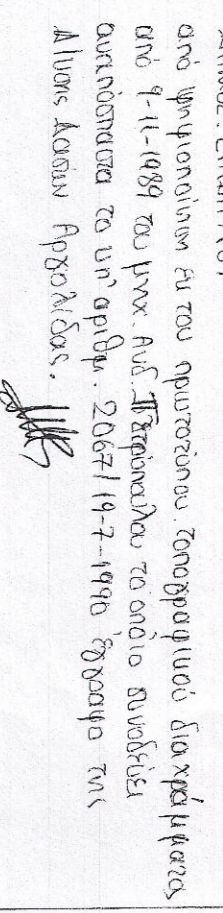 από ψηφιοποίηση εκ του πρωτοτύπου τοπογραφικού διαγράμματος
από 9-11-1989 του μηχ. Ανδ. Πετρόπουλου το οποίο συνοδεύει
αναπόσπαστα το υπ' αριθμ. 2067/19-7-1990 έγγραφο της
Δ/νσης Δασών Αργολίδας.